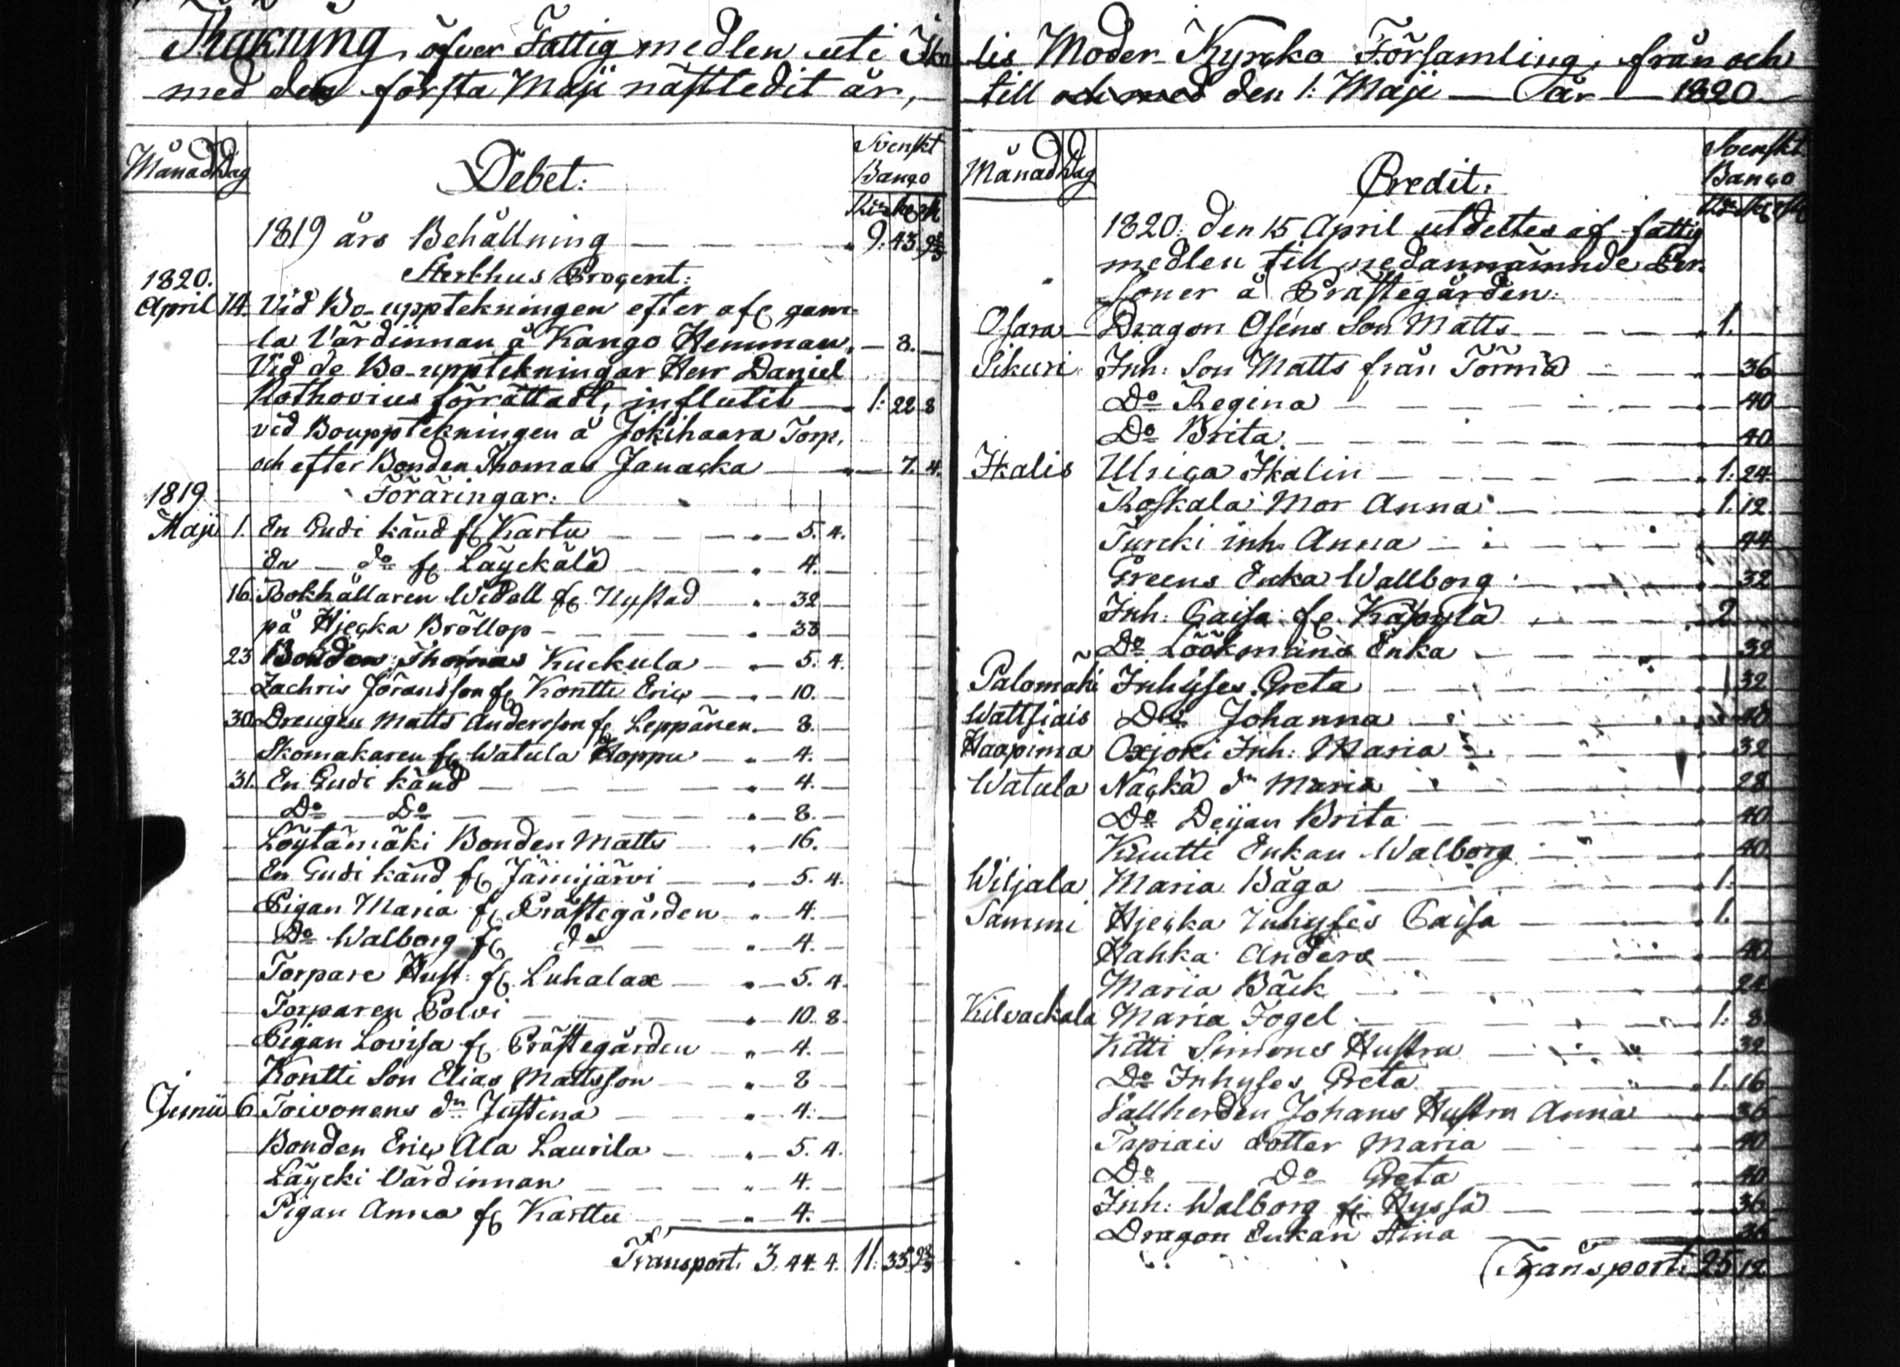 Räkning öfver Fattig medlen uti Ika
med den första Maji nästledit år,
Månad Dag Debet: Svenskt Banco
1819 års Behållning 9. 43. 9 2/3
Sterbhus Procent:
1820.
April 14. Vid Bo-uppteckningen efter afl. gam-
la Värdinnan å Kango Hemman. 8.
Vid de Bo-uppteckningar Herr Daniel
Rothovius förrättadt, influtit 1: 22 8
vid Bouppteckningen å Jokihaara Torp.
och efter Bonden Thomas Janacka 7. 4.
1819 Föräringar:
Maji 1. En Gudi känd fr. Kartu 5. 4.
En do fr. Läyckälä 4.
16 Bokhållaren Widell fr. Nystad 32
på Hjecka Bröllop 33
23 Bonden Thomas Kuckula 5. 4.
Zachris Jöransson fr. Kontti Eric 10.
30. Drengen Matts Andersson fr. Leppänen 8.
Skomakaren fr. Watula Hoppu 4.
31. En Gudi känd 4.
Do Do 8.
Löytämäki Bonden Matts 16.
En Gudi känd fr. Jämijärvi 5. 4.
Pigan Maria fr. Prästegården 4.
Do Walborg fr. do 4.
Torpare Hust: fr. Luhalax 5. 4.
Torparen Polvi 10. 8.
Pigan Lovisa fr. Prästegården 4.
Kontti Son Elias Mattsson 8
Junii 6. Toivonens dr Justina 4.
Bonden Eric Ala Laurila 5. 4.
Läycki Värdinnan 4.
Pigan Anna fr. Karttu 4.
Transport. 3. 44. 4. 11. 35. 9 2/3
lis Moder-Kyrcko Församling, från och
till och med den 1: Maji År 1820
Månad Dag Credit: Svenskt Banco
1820. den 15 April utdeltes af fattig
medlen till nedannämnde Per-
soner å Prästegården:
Osara Dragon Oséns Son Matts 1.
Sikuri Inh: Son Matts från Törmä 36
Do Regina 40
Do Brita 40
Ikalis Ulrica Ikalin 1: 24
Koskala Mor Anna 1: 12
Turcki inh. Anna 44
Greens Enka Wallborg 32
Inh: Caisa fr. Käpylä 2
Do Löökmäns Enka 32
Palomäki Inhyses Greta 32
Wattsiais Do Johanna 40
Haapima Oxjoki Inh: Maria 32
Watula Näckä dr Maria 28
Do Deijan Brita 40
Knutti Enkan Walborg 40
Wiljala Maria Båga 1.
Sammi Hjecka Inhyses Caisa 1.
Hahka Anders 40
Maria Bäck 24
Kilvackala Maria Fogel 1: 8
Kitti Simons Hustru 32
Do Inhyses Greta 1. 16
Vallherden Johans Hustru Anna 36
Tapiais dotter Maria 40
Do Do Greta 40
Inh: Walborg fr. Kyssä 36
Dragon Enkan Stina 36
Transport. 25 12